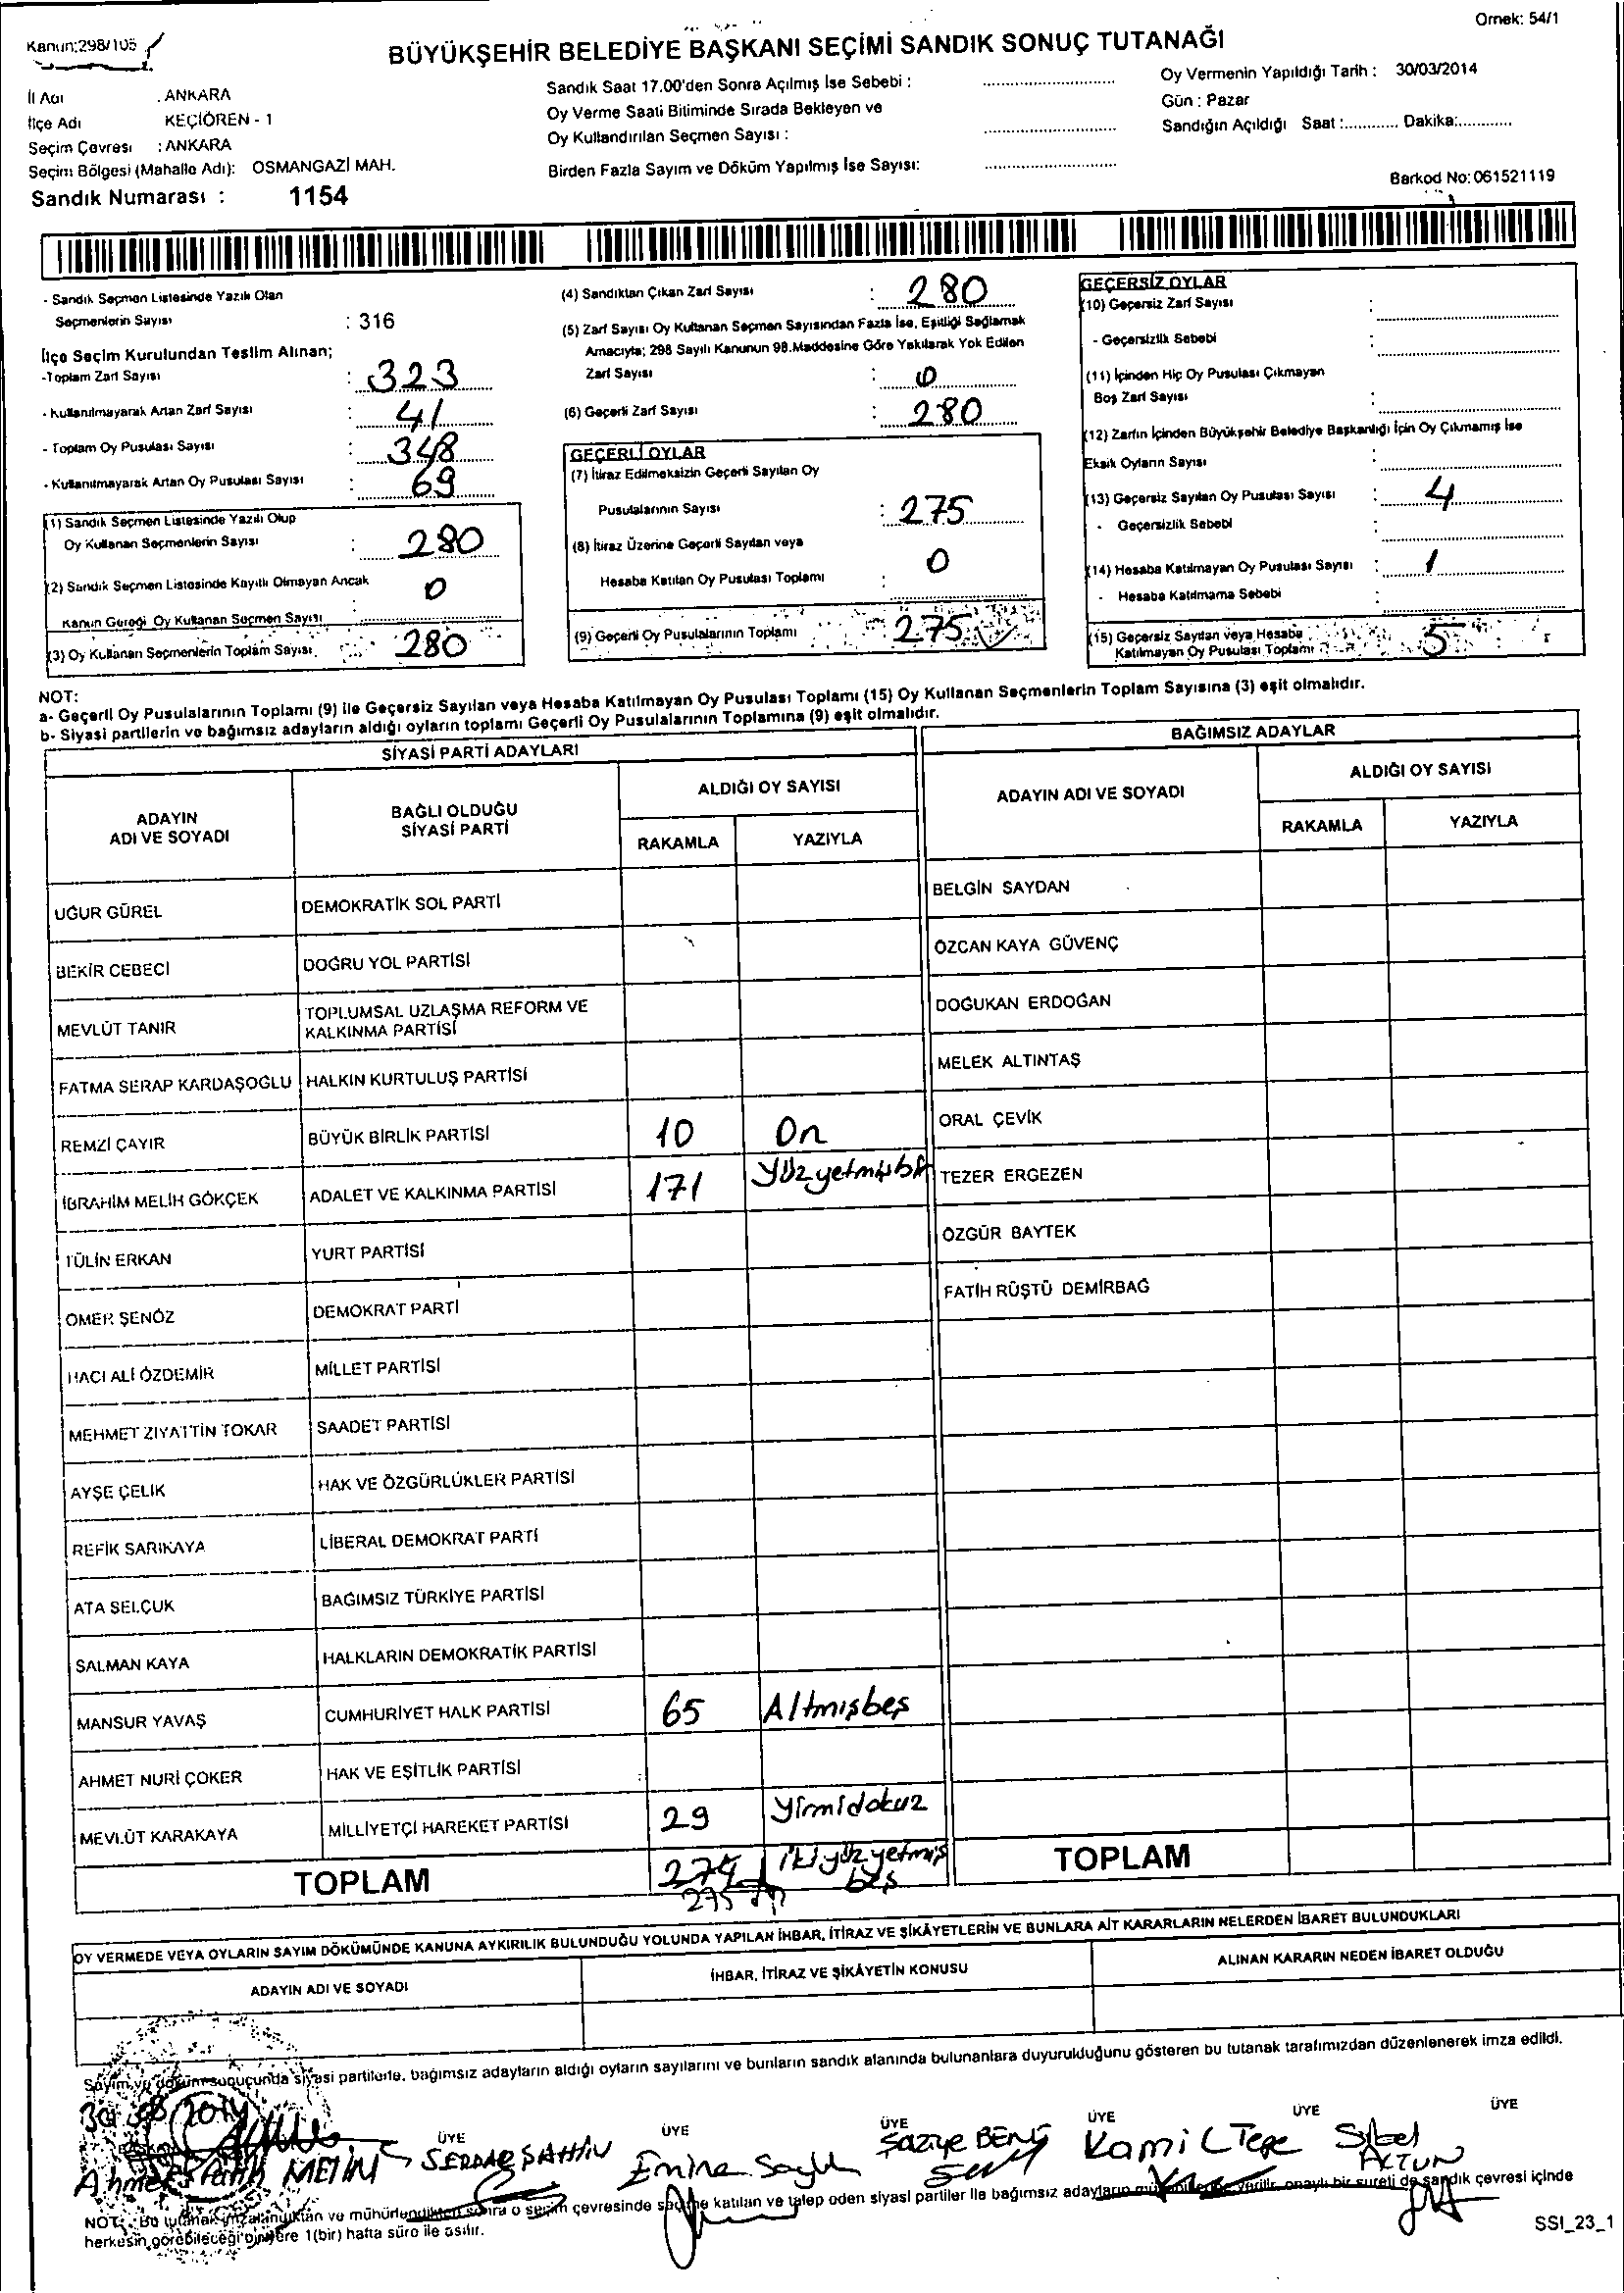 Örnek: 54/1
Kanun:298/105
BÜYÜKŞEHİR BELEDİYE BAŞKANI SEÇİMİ SANDIK SONUÇ TUTANAĞI
İl Adı : ANKARA
İlçe Adı KEÇİÖREN - 1
Seçim Çevresi : ANKARA
Seçim Bölgesi (Mahalle Adı): OSMANGAZİ MAH.
Sandık Numarası : 1154
Sandık Saat 17.00'den Sonra Açılmış İse Sebebi :
Oy Verme Saati Bitiminde Sırada Bekleyen ve
Oy Kullandırılan Seçmen Sayısı :
Birden Fazla Sayım ve Döküm Yapılmış İse Sayısı:
Oy Vermenin Yapıldığı Tarih : 30/03/2014
Gün : Pazar
Sandığın Açıldığı Saat :............ Dakika:............
Barkod No: 061521119
- Sandık Seçmen Listesinde Yazılı Olan
Seçmenlerin Sayısı : 316
İlçe Seçim Kurulundan Teslim Alınan;
-Toplam Zarf Sayısı : 323
- Kullanılmayarak Artan Zarf Sayısı : 41
- Toplam Oy Pusulası Sayısı : 348
- Kullanılmayarak Artan Oy Pusulası Sayısı : 69
(1) Sandık Seçmen Listesinde Yazılı Olup
Oy Kullanan Seçmenlerin Sayısı : 280
(2) Sandık Seçmen Listesinde Kayıtlı Olmayan Ancak
Kanun Gereği Oy Kullanan Seçmen Sayısı : 0
(3) Oy Kullanan Seçmenlerin Toplam Sayısı : 280
(4) Sandıktan Çıkan Zarf Sayısı : 280
(5) Zarf Sayısı Oy Kullanan Seçmen Sayısından Fazla İse, Eşitliği Sağlamak
Amacıyla; 298 Sayılı Kanunun 98.Maddesine Göre Yakılarak Yok Edilen
Zarf Sayısı : 0
(6) Geçerli Zarf Sayısı : 280
GEÇERLİ OYLAR
(7) İtiraz Edilmeksizin Geçerli Sayılan Oy
Pusulalarının Sayısı : 275
(8) İtiraz Üzerine Geçerli Sayılan veya
Hesaba Katılan Oy Pusulası Toplamı : 0
(9) Geçerli Oy Pusulalarının Toplamı : 275
GEÇERSİZ OYLAR
(10) Geçersiz Zarf Sayısı :
- Geçersizlik Sebebi :
(11) İçinden Hiç Oy Pusulası Çıkmayan
Boş Zarf Sayısı :
(12) Zarfın İçinden Büyükşehir Belediye Başkanlığı İçin Oy Çıkmamış İse
Eksik Oyların Sayısı :
(13) Geçersiz Sayılan Oy Pusulası Sayısı : 4
- Geçersizlik Sebebi :
(14) Hesaba Katılmayan Oy Pusulası Sayısı : 1
- Hesaba Katılmama Sebebi :
(15) Geçersiz Sayılan veya Hesaba
Katılmayan Oy Pusulası Toplamı : 5
NOT:
a- Geçerli Oy Pusulalarının Toplamı (9) ile Geçersiz Sayılan veya Hesaba Katılmayan Oy Pusulası Toplamı (15) Oy Kullanan Seçmenlerin Toplam Sayısına (3) eşit olmalıdır.
b- Siyasi partilerin ve bağımsız adayların aldığı oyların toplamı Geçerli Oy Pusulalarının Toplamına (9) eşit olmalıdır.
SİYASİ PARTİ ADAYLARI
ADAYIN ADI VE SOYADI
BAĞLI OLDUĞU SİYASİ PARTİ
ALDIĞI OY SAYISI
RAKAMLA YAZIYLA
UĞUR GÜREL DEMOKRATİK SOL PARTİ
BEKİR CEBECİ DOĞRU YOL PARTİSİ
MEVLÜT TANIR TOPLUMSAL UZLAŞMA REFORM VE
KALKINMA PARTİSİ
FATMA SERAP KARDAŞOĞLU HALKIN KURTULUŞ PARTİSİ
REMZİ ÇAYIR BÜYÜK BİRLİK PARTİSİ 10 On
İBRAHİM MELİH GÖKÇEK ADALET VE KALKINMA PARTİSİ 171 Yüzyetmişbir
TÜLİN ERKAN YURT PARTİSİ
ÖMER ŞENÖZ DEMOKRAT PARTİ
HACI ALİ ÖZDEMİR MİLLET PARTİSİ
MEHMET ZİYATTİN TOKAR SAADET PARTİSİ
AYŞE ÇELİK HAK VE ÖZGÜRLÜKLER PARTİSİ
REFİK SARIKAYA LİBERAL DEMOKRAT PARTİ
ATA SELÇUK BAĞIMSIZ TÜRKİYE PARTİSİ
SALMAN KAYA HALKLARIN DEMOKRATİK PARTİSİ
MANSUR YAVAŞ CUMHURİYET HALK PARTİSİ 65 Altmışbeş
AHMET NURİ ÇÖKER HAK VE EŞİTLİK PARTİSİ
MEVLÜT KARAKAYA MİLLİYETÇİ HAREKET PARTİSİ 29 Yirmidokuz
TOPLAM 274 ikiyüzyetmiş
275 beş
BAĞIMSIZ ADAYLAR
ADAYIN ADI VE SOYADI
ALDIĞI OY SAYISI
RAKAMLA YAZIYLA
BELGİN SAYDAN
ÖZCAN KAYA GÜVENÇ
DOĞUKAN ERDOĞAN
MELEK ALTINTAŞ
ORAL ÇEVİK
TEZER ERGEZEN
ÖZGÜR BAYTEK
FATİH RÜŞTÜ DEMİRBAĞ
TOPLAM
OY VERMEDE VEYA OYLARIN SAYIM DÖKÜMÜNDE KANUNA AYKIRILIK BULUNDUĞU YOLUNDA YAPILAN İHBAR, İTİRAZ VE ŞİKÂYETLERİN VE BUNLARA AİT KARARLARIN NELERDEN İBARET BULUNDUKLARI
ADAYIN ADI VE SOYADI İHBAR, İTİRAZ VE ŞİKÂYETİN KONUSU ALINAN KARARIN NEDEN İBARET OLDUĞU
Sayım ve döküm sonucunda siyasi partilerle, bağımsız adayların aldığı oyların sayılarını ve bunların sandık alanında bulunanlara duyurulduğunu gösteren bu tutanak tarafımızdan düzenlenerek imza edildi.
BAŞKAN ÜYE ÜYE ÜYE ÜYE ÜYE ÜYE
Ahmet Fatih METİN SERDAR ŞAHİN Emine Şaziye Kamil Tepe Sibel
NOT: Bu tutanak imzalandıktan ve mühürlendikten sonra o seçim çevresinde seçime katılan ve talep eden siyasi partiler ile bağımsız adayların müşahitlerine verilir, onaylı bir sureti de sandık çevresi içinde
herkesin görebileceği bir yere 1(bir) hafta süre ile asılır.
SSI_23_1